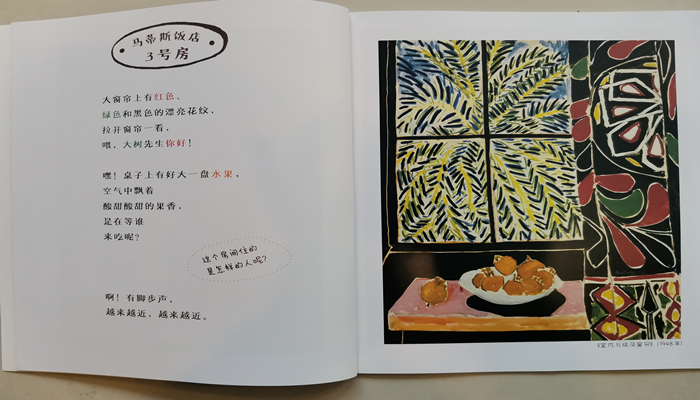 马蒂斯饭店
3号房
大窗帘上有红色、
绿色和黑色的漂亮花纹，
拉开窗帘一看，
喂，大树先生你好！
嘿！桌子上有好大一盘水果，
空气中飘着
酸甜酸甜的果香，
是在等谁
来吃呢？
这个房间住的
是怎样的人呢？
啊！有脚步声，
越来越近，越来越近。
《室内与埃及窗帘》（1948年）